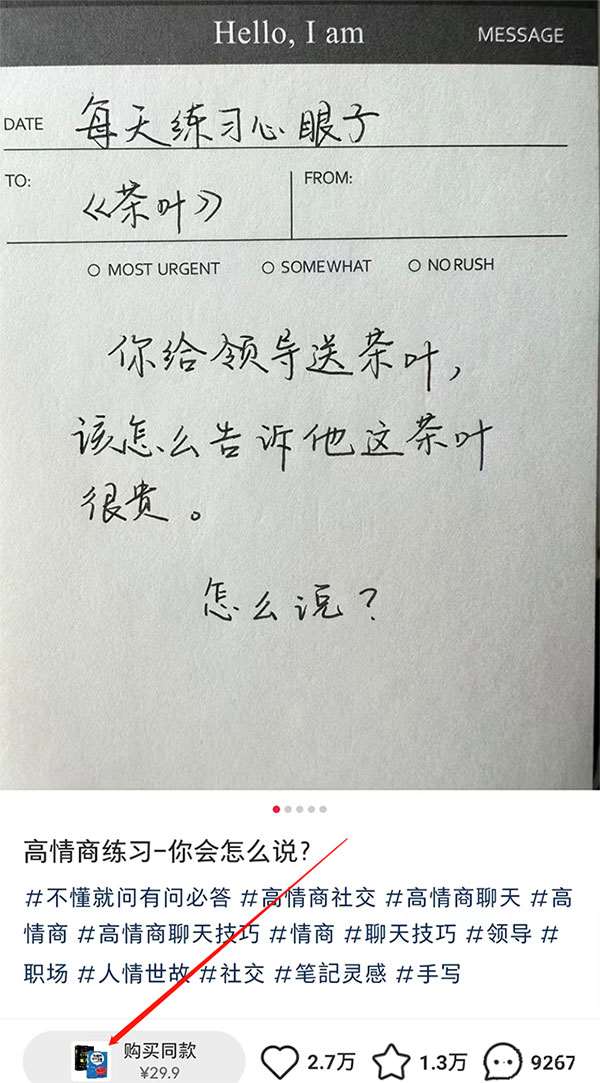 Hello, I am
MESSAGE
DATE
每天练习心眼子
TO:
《茶叶》
FROM:
MOST URGENT
SOMEWHAT
NO RUSH
你给领导送茶叶,
该怎么告诉他这茶叶
很贵。
怎么说?
高情商练习-你会怎么说?
#不懂就问有问必答 #高情商社交 #高情商聊天 #高
情商 #高情商聊天技巧 #情商 #聊天技巧 #领导 #
职场 #人情世故 #社交 #笔記灵感 #手写
购买同款
¥29.9
2.7万
1.3万
9267